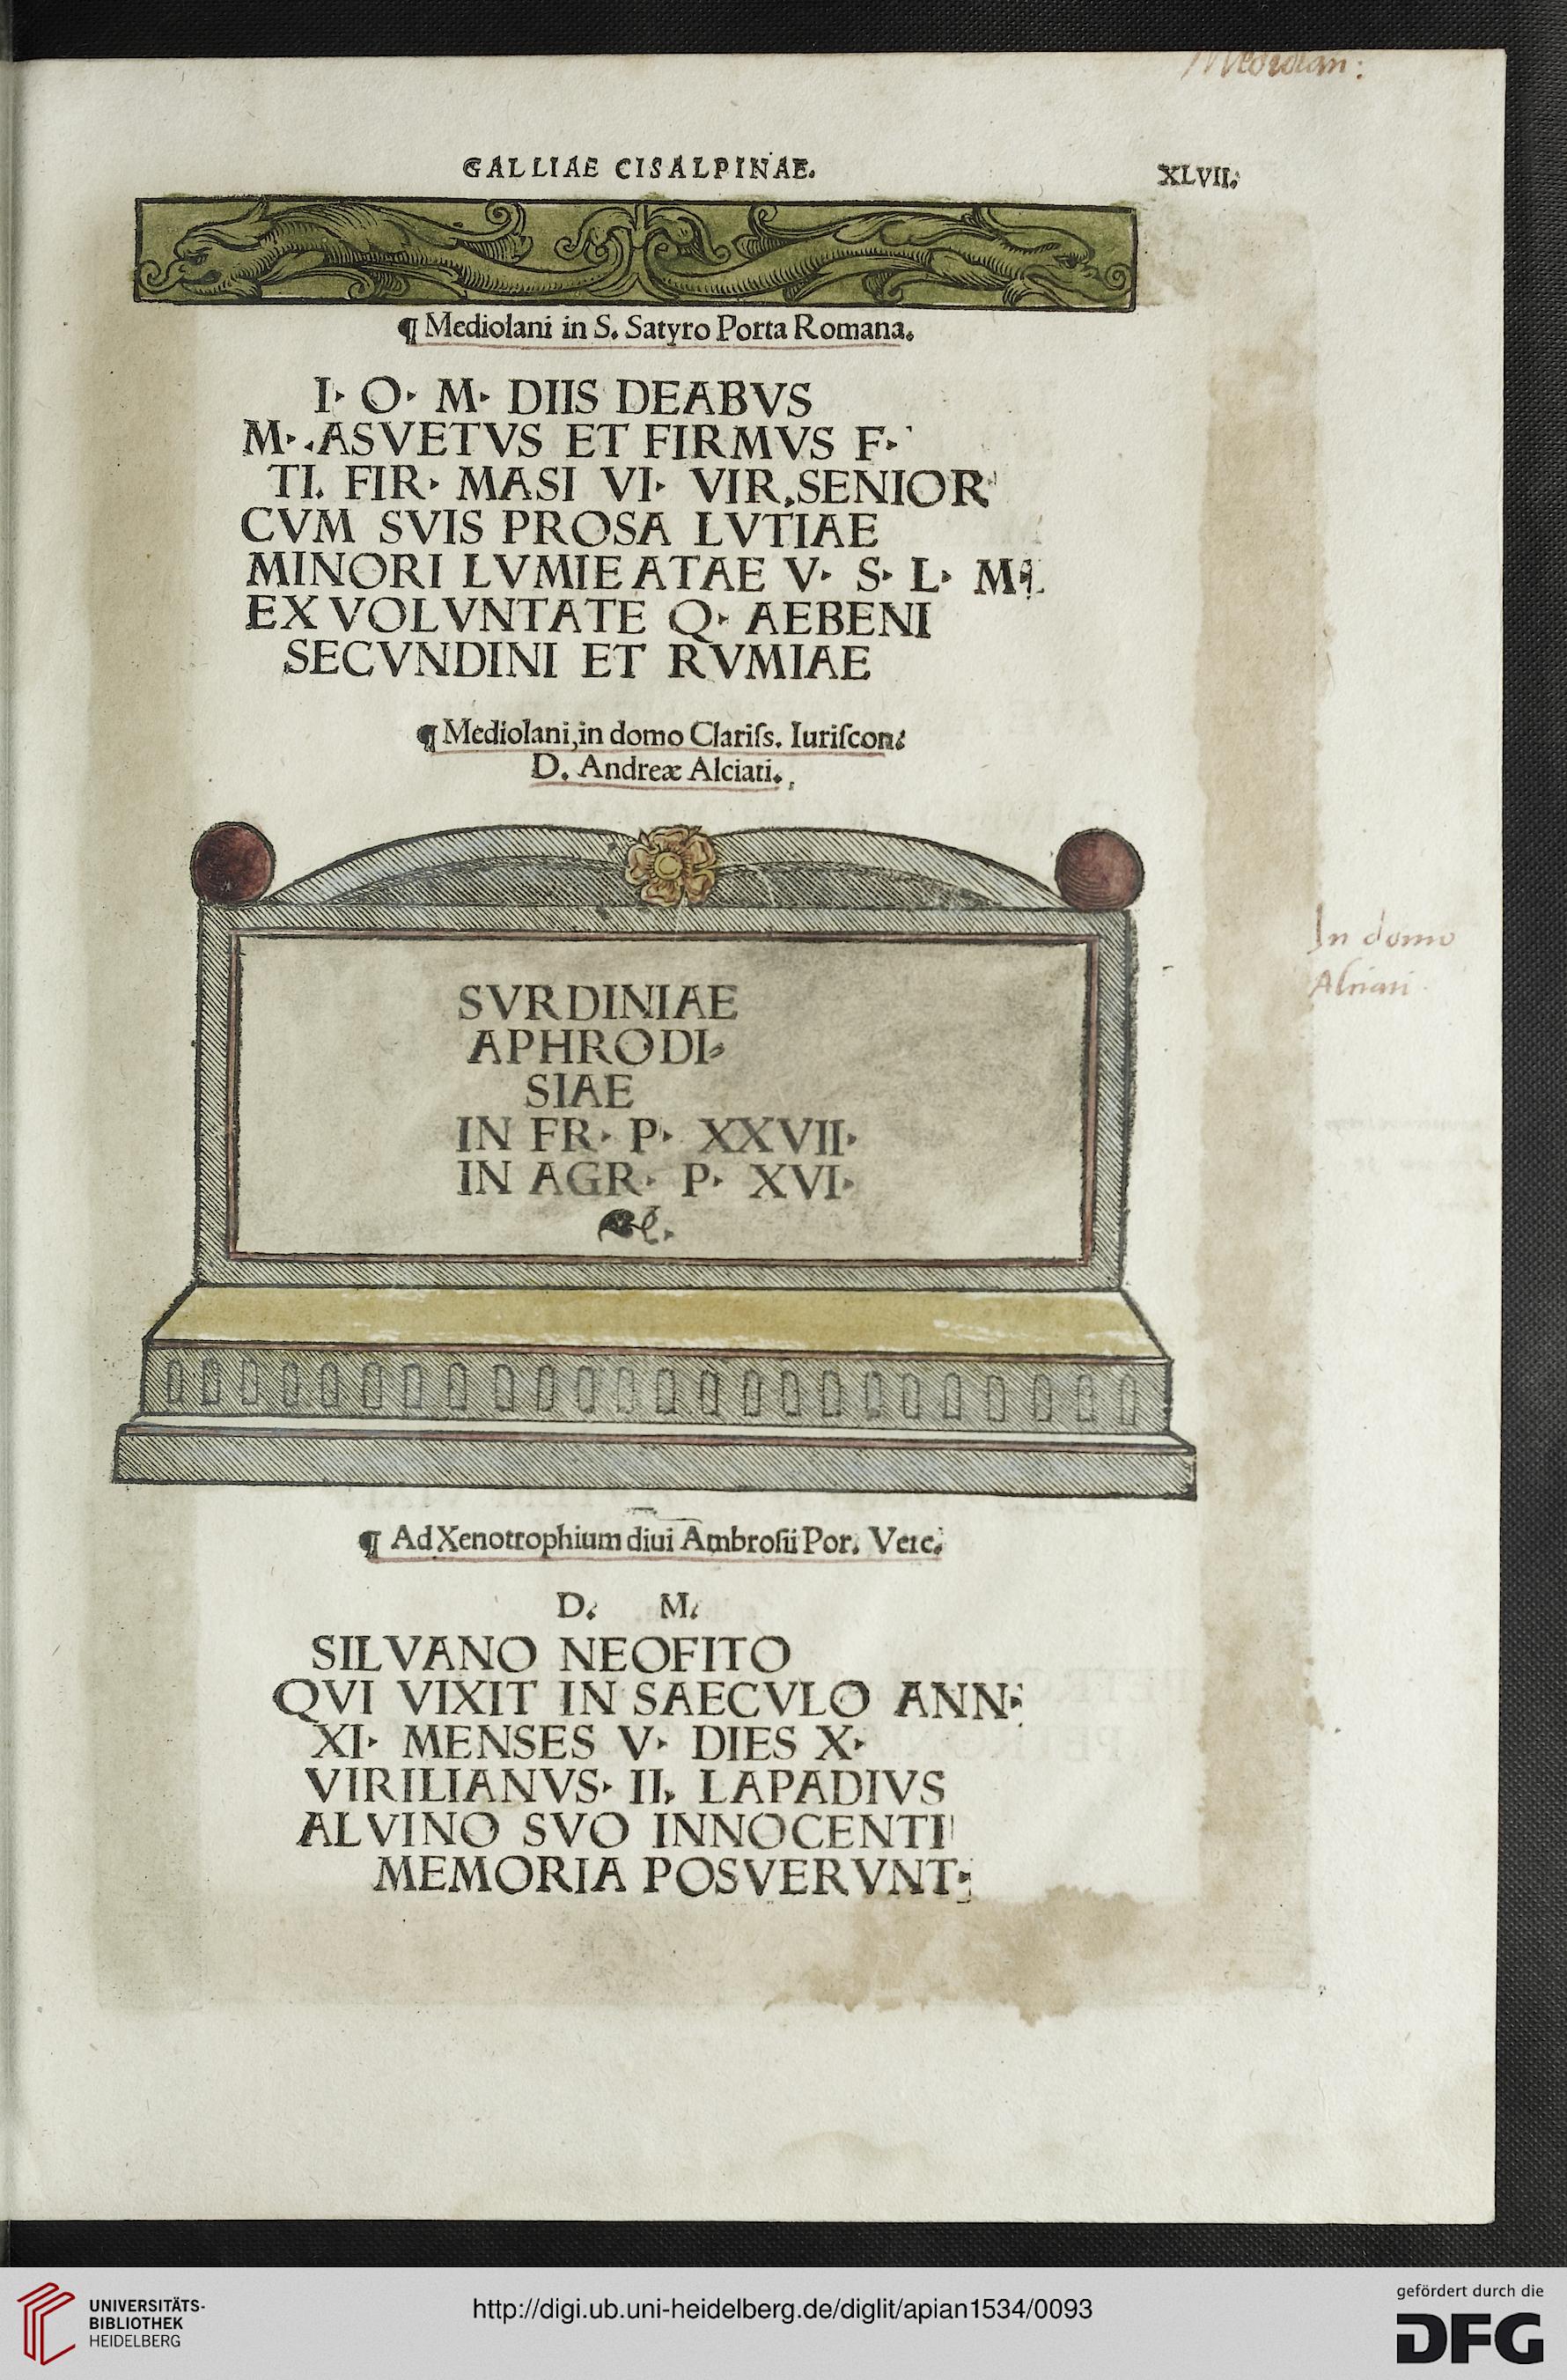 Mediolan:
GALLIAE CISALPINAE.
XLVII.
¶ Mediolani in S. Satyro Porta Romana.
I· O· M· DIIS DEABVS
M· ASVETVS ET FIRMVS F·
TI. FIR· MASI VI· VIR. SENIOR
CVM SVIS PROSA LVTIAE
MINORI LVMIEATAE V· S· L· M·
EX VOLVNTATE Q· AEBENI
SECVNDINI ET RVMIAE
¶ Mediolani, in domo Clariſs. Iuriſcon:
D. Andreæ Alciati.
In domo
Alciati.
SVRDINIAE
APHRODI-
SIAE
IN FR· P· XXVII·
IN AGR· P· XVI·
¶ Ad Xenotrophium diui Ambroſii Por. Verc.
D. M.
SILVANO NEOFITO
QVI VIXIT IN SAECVLO ANN:
XI· MENSES V· DIES X·
VIRILIANVS· II, LAPADIVS
ALVINO SVO INNOCENTI
MEMORIA POSVERVNT:
UNIVERSITÄTS-
BIBLIOTHEK
HEIDELBERG
http://digi.ub.uni-heidelberg.de/diglit/apian1534/0093
gefördert durch die
DFG